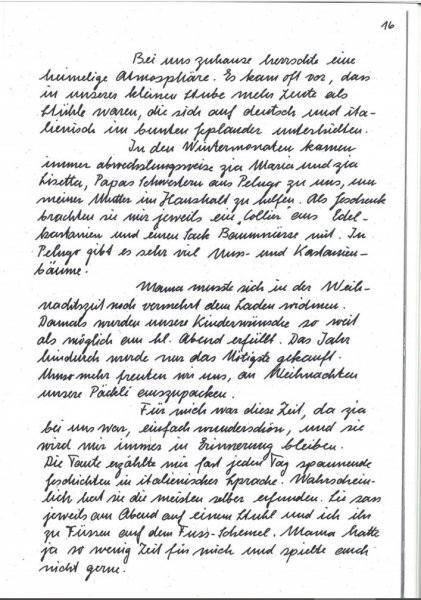 16
Bei uns zuhause herrschte eine
heimelige Atmosphäre. Es kam oft vor, dass
in unserer kleinen Stube mehr Leute als
Stühle waren, die sich auf deutsch und ita-
lienisch im bunten Geplauder unterhielten.
In den Wintermonaten kamen
immer abwechslungsweise zia Maria und zia
Lisetta, Papas Schwestern aus Pelugo zu uns, um
meiner Mutter im Haushalt zu helfen. Als Geschenk
brachten sie mir jeweils ein Collier aus Edel-
kastanien und einen Sack Baumnüsse mit. In
Pelugo gibt es sehr viel Nuss- und Kastanien-
bäume.
Mama musste sich in der Weih-
nachtszeit noch vermehrt dem Laden widmen.
Damals wurden unsere Kinderwünsche so weit
als möglich am hl. Abend erfüllt. Das Jahr
hindurch wurde nur das Nötigste gekauft.
Umso mehr freuten wir uns, an Weihnachten
unsere Päckli auszupacken.
Für mich war diese Zeit, da zia
bei uns war, einfach wunderschön, und sie
wird mir immer in Erinnerung bleiben.
Die Tante erzählte mir fast jeden Tag spannende
Geschichten in italienischer Sprache. Wahrschein-
lich hat sie die meisten selber erfunden. Sie sass
jeweils am Abend auf einem Stuhl und ich ihr
zu Füssen auf dem Fuss-Schemel. Mama hatte
ja so wenig Zeit für mich und spielte auch
nicht gerne.